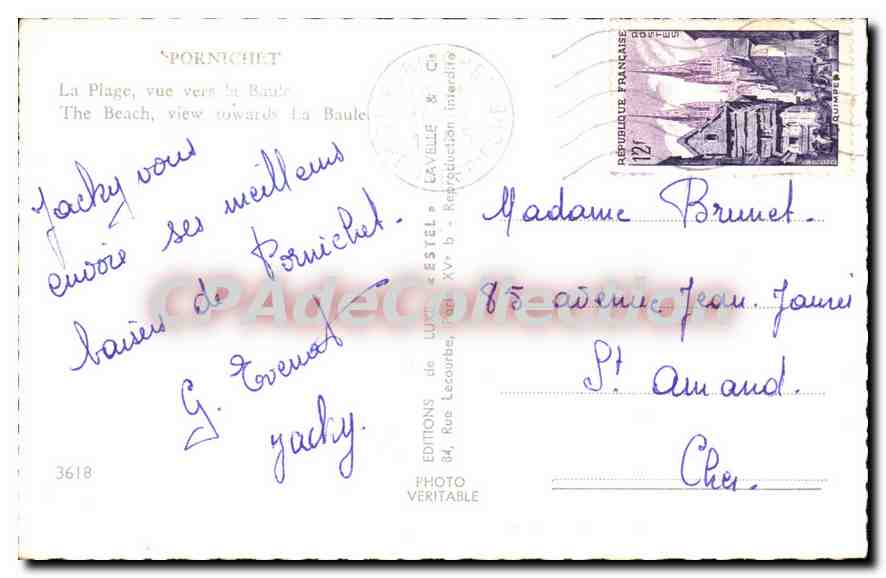 PORNICHET
La Plage, vue vers la Baule
The Beach, view towards La Baule
Jacky vous
envoie ses meilleurs
baisers de Pornichet.
G.
Jacky.
3618
EDITIONS de LUXE « ESTEL » LAVELLE & Cie
84, Rue Lecourbe, Paris XVe b - Reproduction interdite
PHOTO
VERITABLE
RÉPUBLIQUE FRANÇAISE
POSTES
12F
QUIMPER
Madame Brunet.
85 avenue Jean. Jaurès
St Amand.
Cher.
CPAdeCollection